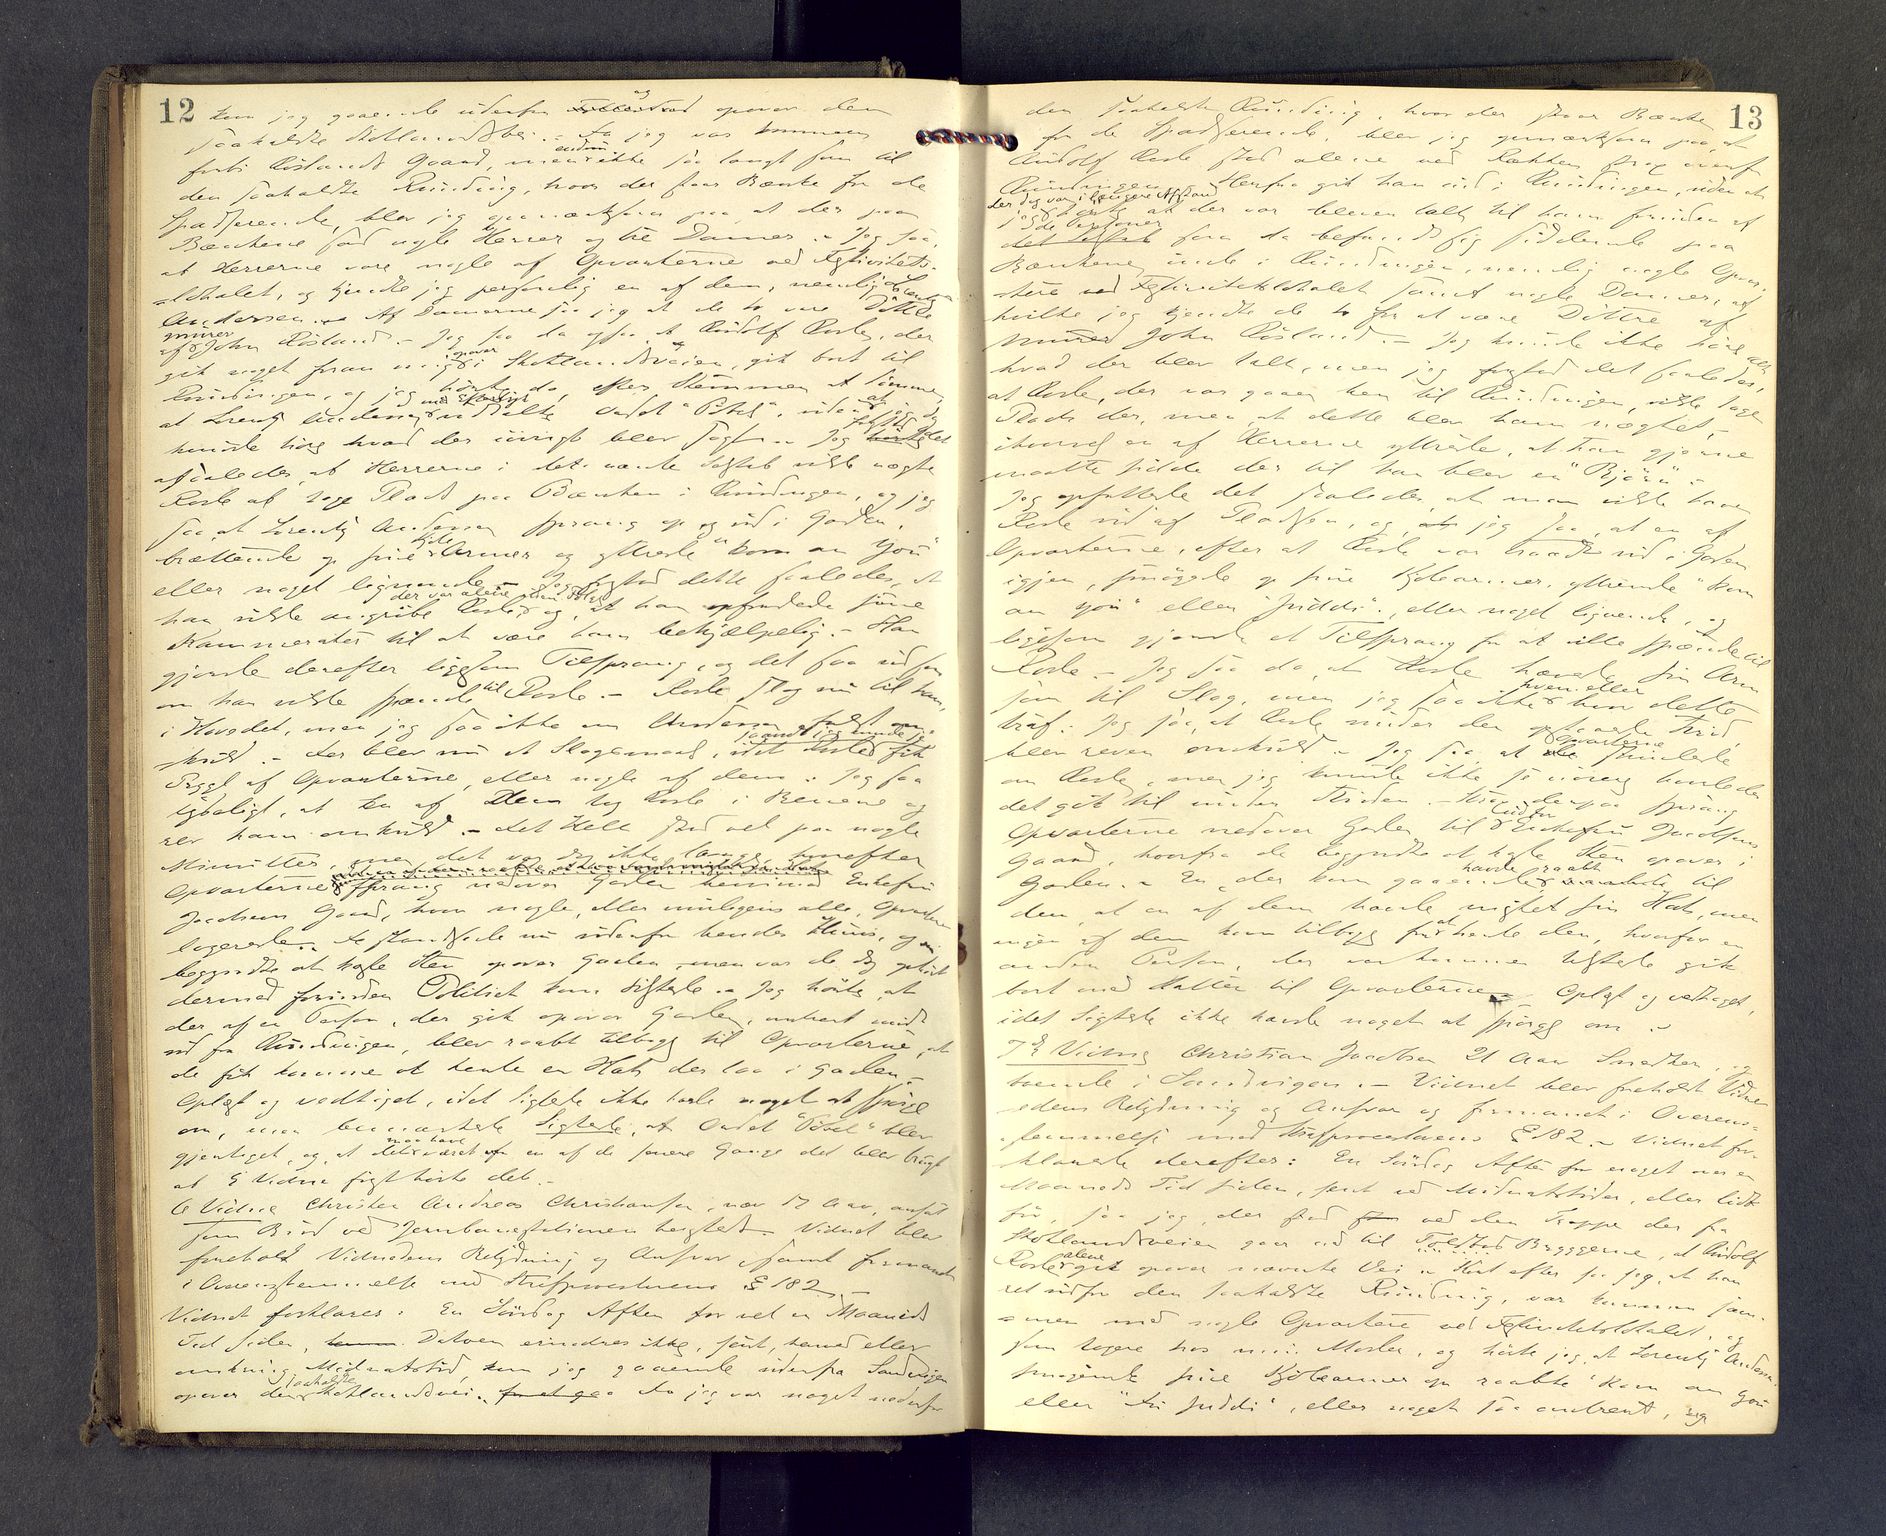 12
kom jeg gaaende udenfra og opover den
saakaldte Skotlandsvei. – Da jeg var kommen
forbi Röslands Gaard, men endnu ikke saa langt frem til
den saakaldte Runding, hvor der staar Bænke for de
Spadserende, blev jeg opmærksom paa at der paa
Bænkene sad nogle Herrer og tre Damer. – Jeg saa,
at Herrerne vare nogle af Opvarterne ved Festivitets-
lokalet, og kjendte jeg personlig en af dem, nemlig Lorentz
Andersen. – Af Damerne saa jeg at de to vare Döttre
af Murer John Rösland. – Jeg saa da ogsaa at Rudolf Rosle, der
gik noget foran mig opover i Skotlandsveien, gik bort til
Rundingen, og jeg hörte da, efter Stemmen at dömme,
at Lorentz Andersen med Eftertryk udtalte Ordet "Pöbel", uden at jeg
kunde höre hvad der iövrigt blev sagt. – Jeg forstod det
saaledes, at Herrerne i det nævnte Selskab vilde nægte
Rosle at tage Plads paa Bænken i Rundingen, og jeg
saa, at Lorentz Andersen sprang op og ud i Gaden,
brættende op sine Kjoleærmer og yttrede "kom an you"
eller noget lignende – Jeg forstod dette saaledes, at
han vilde angribe Rosle, der var alene uden Fölge, og at han opfordrede sine
Kammerater til at være ham behjælpelig. – Han
gjorde derefter ligesom Tilsprang, og det saa ud som
om han vilde spænde til Rosle. – Rosle slog nu til ham
i Hovedet, men jeg saa ikke om Andersen faldt om-
kuld. – Der blev nu et Slagsmaal, idet Rosle fik
Prygl af Opvarterne, eller nogle af dem. – Jeg saa
tydeligt, at en af Dem tog Rosle i Benene og
rev ham omkuld. – Det Hele stod vel paa nogle
Minutter, men det var ikke længe, hvorefter
Opvarterne sprang nedover Gaden henimod Enkefru
Jacobsens Gaard, hvor nogle, eller muligens alle, Opvarterne
logerede. – De standsede nu udenfor hendes Huus, og
begyndte at kaste Sten opover Gaden, men var de dog ophört
dermed forinden Politiet kom tilstede. – Jeg hörte, at
der af en Person, der gik opover Gaden, omtrent midt
ud for Rundingen, blev raabt tilbage til Opvarterne, at
de fik komme at hente en Hat, der laa i Gaden. –
Oplæst og vedtaget, idet Sigtede ikke havde noget at spörge
om, men bemærkede Sigtede, at Ordet "Pöbel" blev
gjentaget, og at det maa have været en af de senere Gange det blev brugt
at 5 Vidne först hörte det. –
6 Vidne Christen Andreas Christiansen, nær 17 Aar, ansat
som Bud ved Jernbanestationen hersteds. – Vidnet blev
foreholdt Vidneedens Betydning og Ansvar samt formanet
i Overensstemmelse med Straffeproceslovens § 182. –
Vidnet forklarer: En Söndag Aften for vel en Maaneds
Tid siden, Datoen erindres ikke, sent, henad eller
omkring Midnatstid, kom jeg gaaende udenfra Sandvigen
opover den saakaldte Skotlandsvei. – Da jeg var noget nedenfor
13
den saakaldte Runding, hvor der staar Bænke
for de Spadserende, blev jeg opmærksom paa, at
Rudolf Rosle stod alene ved Rækken strax ovenfor
Rundingen. Herfra gik han ud i Rundingen, uden at
jeg, der dog var i længere Afstand, hörte at der var bleven talt til ham forinden af
de Personer som da befandt sig siddende paa
Bænkene inde i Rundingen, nemlig nogle Opvar-
tere ved Festivitetslokalet samt nogle Damer, af
hvilke jeg kjendte de to for at være Döttre af
Murer John Rösland. – Jeg kunde ikke höre alt
hvad der blev talt, men jeg forstod det saaledes,
at Rosle, der var gaaet hen til Rundingen, vilde tage
Plads der, men at dette blev ham nægtet,
ihvorvel en af Herrerne yttrede, at han gjerne
maatte sidde der til han blev en "Björn". –
Jeg opfattede det saaledes, at man vilde have
Rosle ud af Pladsen, og jeg saa, at en af
Opvarterne, efter at Rosle var traadt ud i Gaden
igjen, smögede op sine Kjoleærmer, yttrende "kom
an you" eller "Juddi", eller noget lignende, og
ligesom gjorde et Tilsprang for at ville spænde til
Rosle. – Jeg saa da, at Rosle hævede sin Arm
som til Slag, men jeg saa ikke hvem eller hvor dette
traf. Jeg saa, at Rosle under den opstaaede Strid,
blev reven omkuld. – Jeg saa, at Opvarterne
om Rosle, men jeg kunde ikke se nöie hvorledes
det gik til under Striden. – Strax derpaa sprang
Opvarterne nedover Gaden til udfor Enkefru Jacobsens
Gaard, hvorfra de begyndte at kaste Sten opover i
Gaden. – En, der kom gaaende, havde raabt til
dem, at en af dem havde mistet sin Hat, men
ingen af dem kom tilbage for at hente den, hvorfor en
anden Person, der var kommen tilstede gik
bort med Hatten til Opvarterne. – Oplæst og vedtaget,
idet Sigtede ikke havde noget at spörge om. –
7de Vidne Christian Jacobsen 21 Aar Snedker,
boende i Sandvigen. – Vidnet blev foreholdt Vidne-
edens Betydning og Ansvar og formanet i Overens-
stemmelse med Straffeproceslovens § 182. – Vidnet for-
klarede derefter: En Söndag Aften for noget over en
Maaneds Tid siden, sent ved Midnatstider, eller lidt
för, saa jeg, der stod ved den Trappe der fra
Skotlandsveien gaar ud til Toldbod Bryggerne, at Rudolf
Rosle alene gik opover nævnte Vei. – Kort efter saa jeg, at han
ret udfor den saakaldte Runding, var kommen sam-
men med nogle Opvartere ved Festivitetslokalet, og
som logere hos min Moder, og hörte jeg, at Lorentz Andersen
smögende sine Kjoleærmer op raabte "kom an you"
eller "Juddi", eller noget saa omtrent, og